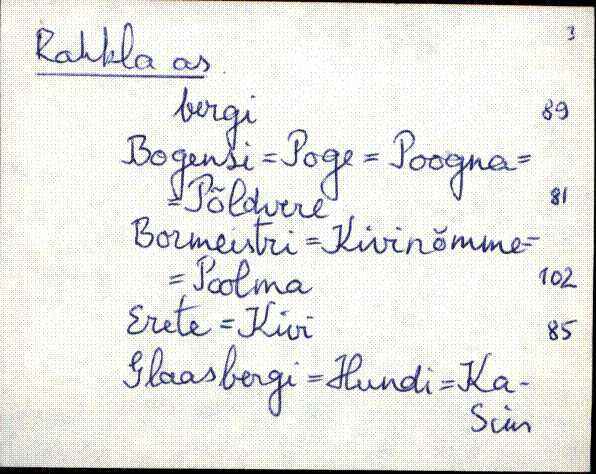 3
Rahkla as.
bergi 89
Bogensi = Poge = Poogna =
= Põldvere 81
Bormeistri = Kivinõmme =
= Poolma 102
Erete = Kivi 85
Glaasbergi = Hundi = Ka-
sim